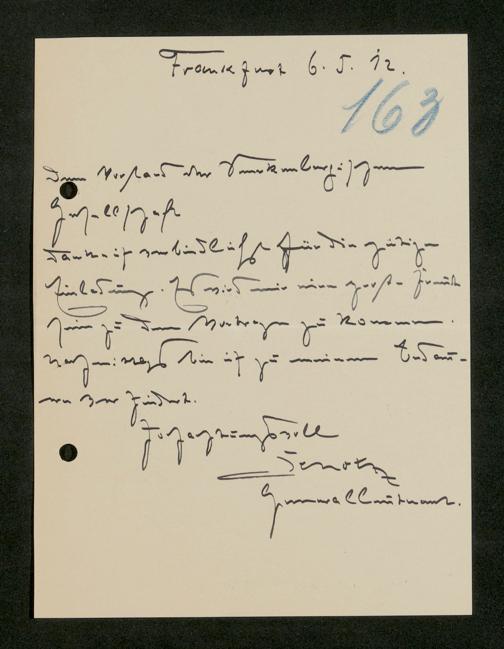 Frankfurt 6. 5. 12.
163
Dem Vorstand der Senckenbergischen
Gesellschaft
danke ich verbindlichst für die gütige
Einladung. Es wird mir eine große Freude
sein zu dem Vortrage zu kommen.
bin ich zu meinem Bedau-
ern verhindert.
Hochachtungsvoll
Generalleutnant.